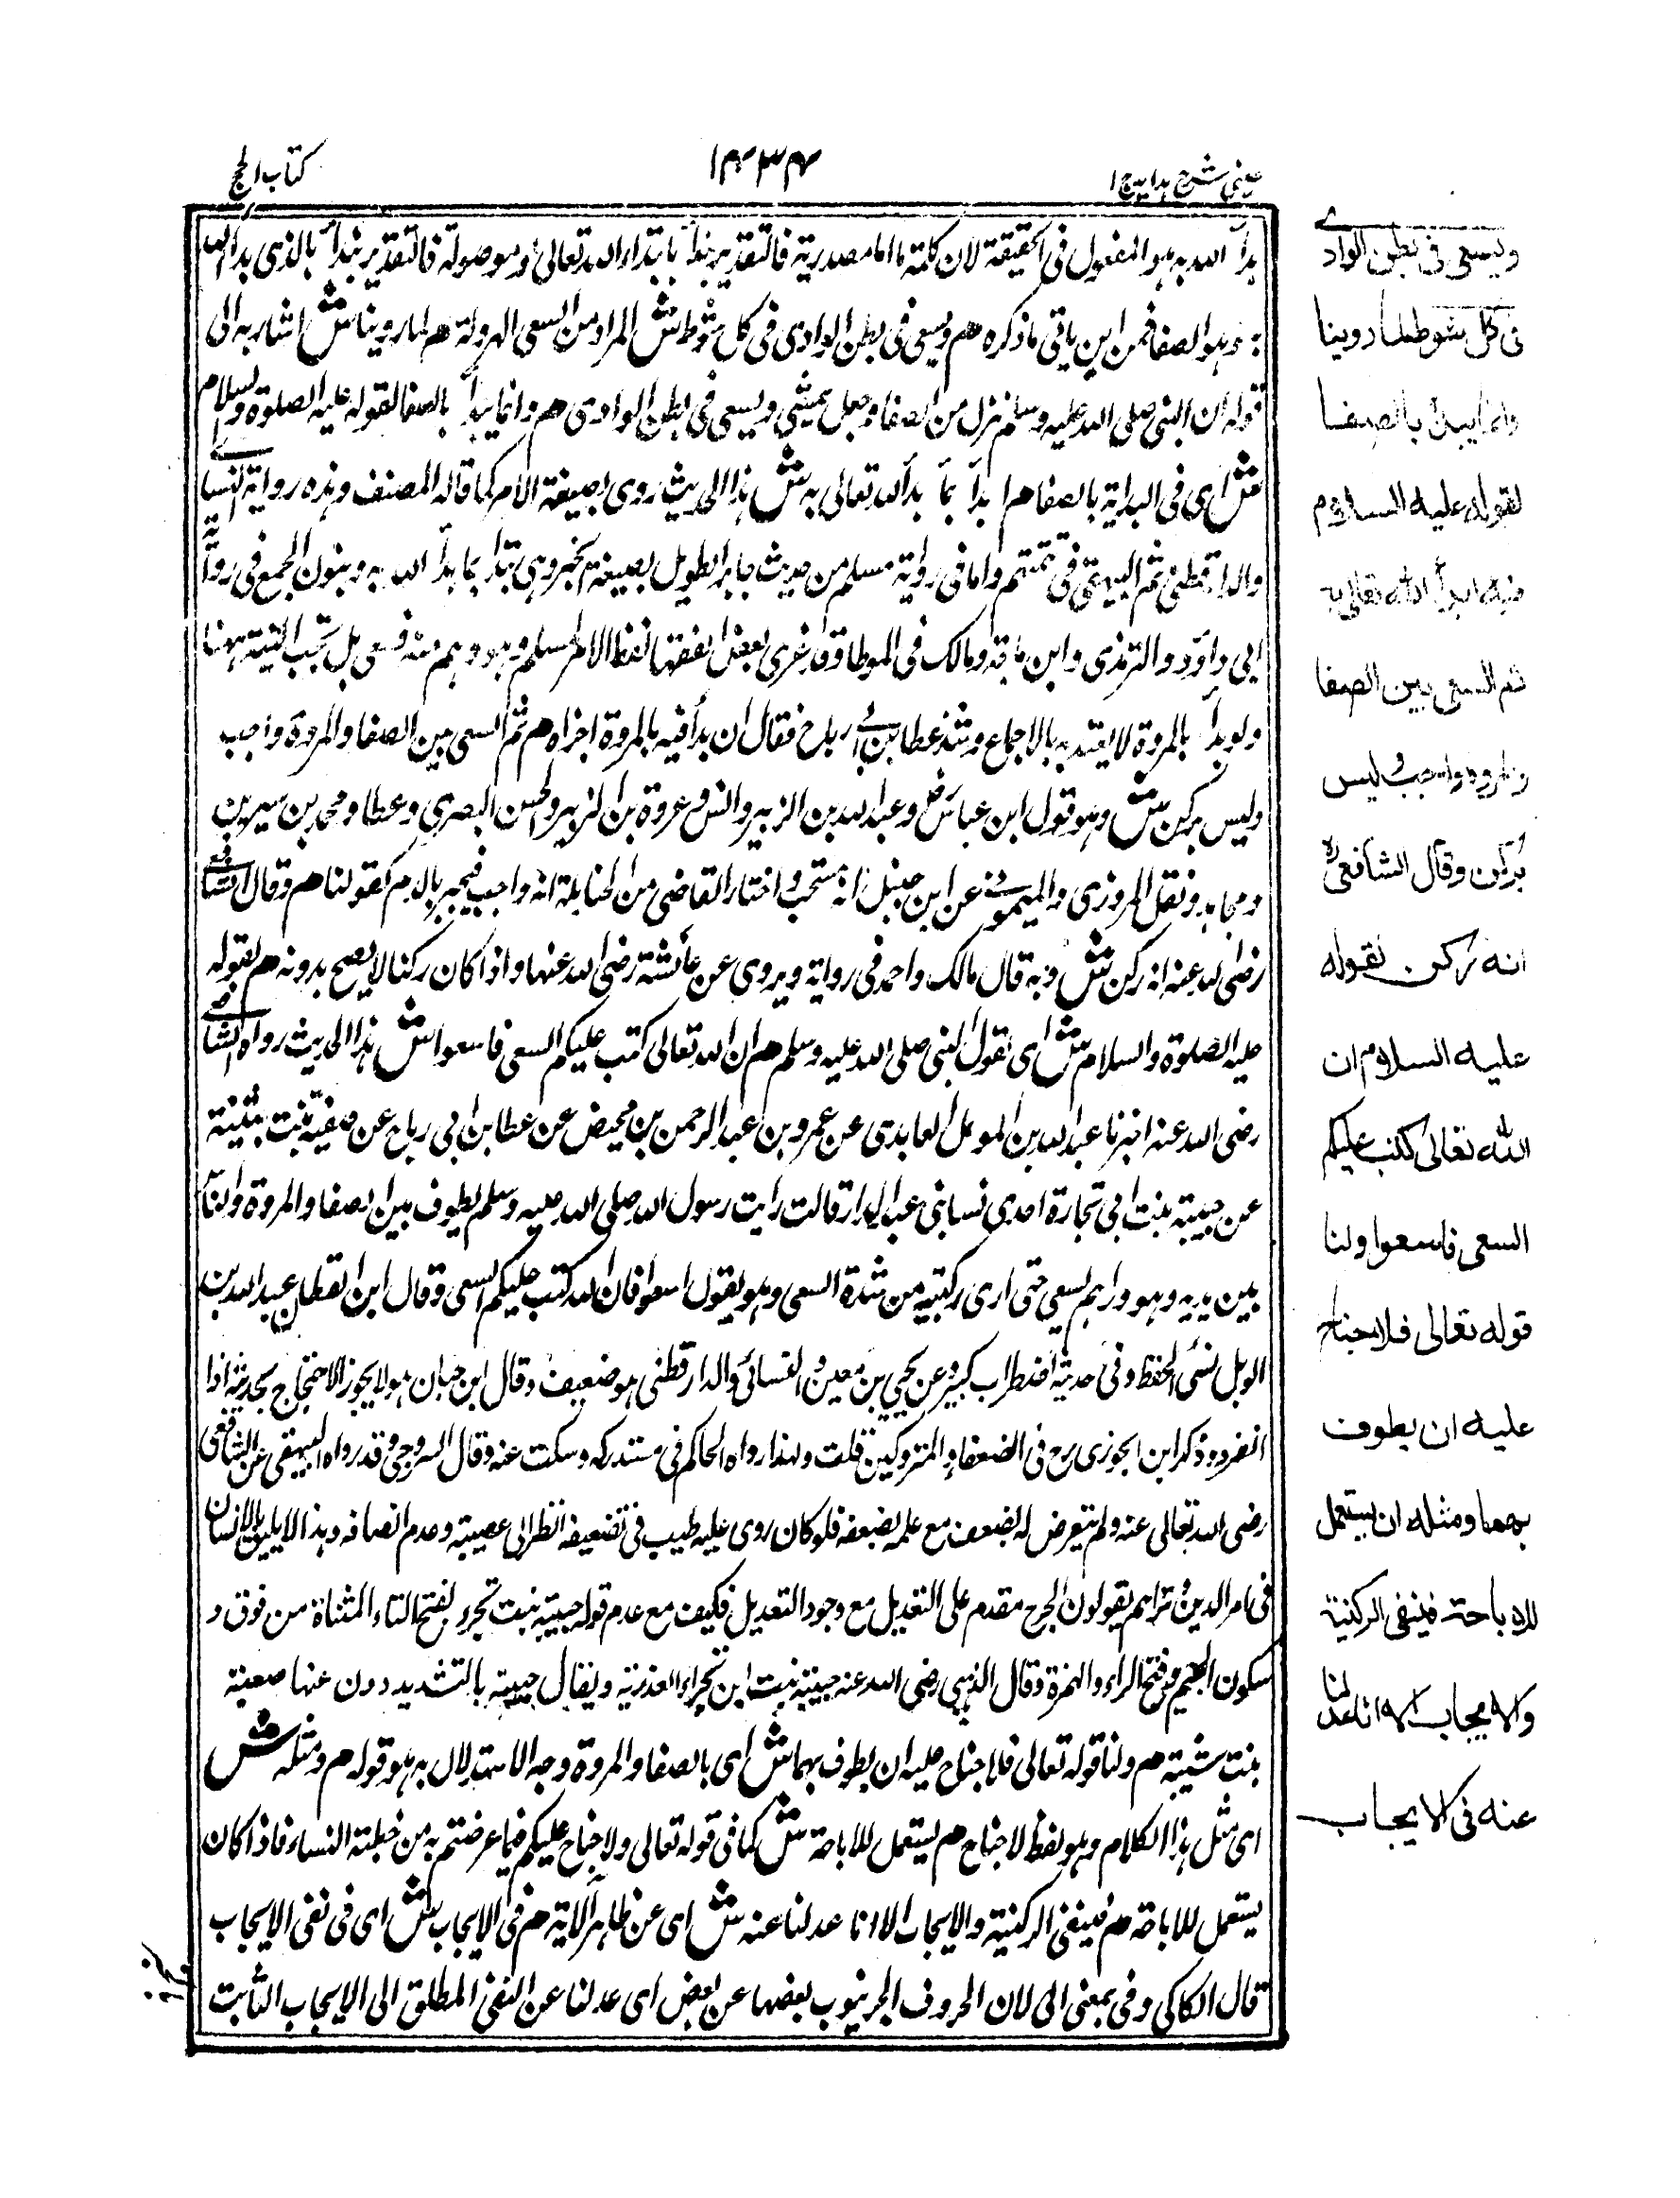 عيني شرح هدايه ج ١
١٤٣٤
كتاب الحج
بدأ الله به هو المفعول في الحقيقة لان كلمة ما اما مصدرية فالتقدير نبدأ بابتداء الله تعالى او موصولة فالتقدير نبدأ بالذى بدأ الله
به وهو الصفا فمن اين ياتى ما ذكره هم ويسعى فى بطن الوادى فى كل شوط ش المراد من السعى الهرولة هم لما روينا ش اشار به الى
قوله ان النبى صلى الله عليه وسلم نزل من الصفا وجعل يمشى ويسعى فى بطن الوادى هم وانما يبدأ بالصفا لقوله عليه الصلوة والسلام
ش اى فى البداية بالصفا هم ابدأ بما بدأ الله تعالى به ش هذا الحديث روى بصيغة الامر كما قاله المصنف وهذه رواية النسائى
والدارقطنى ثم البيهقى فى واما فى رواية مسلم من حديث جابر الطويل بصيغة الخبر وهى ابدأ بما بدأ الله به وبنون الجمع فى رواية
ابى داؤد والترمذى وابن ماجه ومالك فى الموطا وقد عزى بعض الفقهاء لفظ الامر لمسلم وهو وهم منه
ولو بدأ بالمروة لا يعتد به بالاجماع وشذ عطا بن ابى رباح فقال ان بدأ فيه بالمروة اجزاه هم ثم السعى بين الصفا والمروة واجب
وليس بركن ش وهو قول ابن عباس رض وعبد الله بن الزبير وانس وعروة بن الزبير والحسن البصرى وعطا ومحمد بن سيرين
ومجاهد ونقل المروزى والميمونى عن ابن حنبل انه مستحب واختار القاضى من الحنابلة انه واجب فيجبر بالدم كقولنا هم وقال الشافعى
رضى الله عنه انه ركن ش وبه قال مالك واحمد فى رواية ويروى عن عائشة رضى الله عنها واذا كان ركنا لا يصح بدونه هم لقوله
عليه الصلوة والسلام ش اى لقول النبى صلى الله عليه وسلم هم ان الله تعالى كتب عليكم السعى فاسعوا ش هذا الحديث رواه الشافعى
رضى الله عنه اخبرنا عبد الله بن المومل العابدى عن عمرو بن عبد الرحمن بن محيض عن عطا بن ابى رباح عن صفية بنت شيبة
عن حبيبة بنت ابى تجارة احدى نساء بنى عبد الدار قالت رايت رسول الله صلى الله عليه وسلم يطوف بين الصفا والمروة والناس
بين يديه وهو وراءهم يسعى حتى ارى ركبتيه من شدة السعى وهو يقول اسعوا فان الله كتب عليكم السعى وقال ابن القطان عبد الله بن
المومل سئ الحفظ وفى حديثه اضطراب كبير وعن يحيى بن معين والنسائى والدارقطنى هو ضعيف وقال ابن حبان هو لا يجوز الاحتجاج بحديثه اذا
انفرد وذكر ابن الجوزى رح فى الضعفاء والمتروكين قلت ولهذا رواه الحاكم فى مستدركه وسكت عنه وقال السروجى وقد رواه البيهقى عن الشافعى
رضى الله تعالى عنه ولم يتعرض له بضعف مع علمه بضعفه فلو كان روى عليه طيب فى تضعيفه انظر الى عصبيته وعدم انصافه وهذا لا يليق بالانسان
فى امر الدين تراهم يقولون الجرح مقدم على التعديل مع وجود التعديل فكيف مع عدم قوله حبيبة بنت تجرء بفتح التاء المثناة من فوق و
سكون الجيم وفتح الراء والهمزة وقال الذهبى رضى الله عنه حبيبة بنت ابن تجراء العذرية ويقال حبيبة بالتشديد دون عنها صفية
بنت شيبة هم ولنا قوله تعالى فلا جناح عليه ان يطوف بهما ش اى بالصفا والمروة وجه الاستدلال به هو قوله هم ومثله ش
اى مثل هذا الكلام وهو لفظ لا جناح هم يستعمل للاباحة ش كما فى قوله تعالى ولا جناح عليكم فيما عرضتم به من خطبة النساء فاذا كان
يستعمل للاباحة هم فينفى الركنية والايجاب الا انا عدلنا عنه ش اى عن ظاهر الاية هم فى الايجاب ش اى فى نفى الايجاب
قال الكاكى وفى بمعنى الى لان الحروف الجر ينوب بعضها عن بعض اى عدلنا عن النفى المطلق الى الايجاب الثابت
ويسعى فى بطن الوادى
فى كل شوط لما روينا
وانما يبدئ بالصفا
لقوله عليه السلام
فيه ابدأ الله تعالى به
ثم السعى بين الصفا
والمروة واجب وليس
بركن وقال الشافعى ره
انه ركن لقوله
عليه السلام ان
الله تعالى كتب عليكم
السعى فاسعوا ولنا
قوله تعالى فلا جناح
عليه ان يطوف
بهما ومثله ان يستعمل
للاباحة فينفى الركنية
والايجاب الا انا عدلنا
عنه فى الايجاب